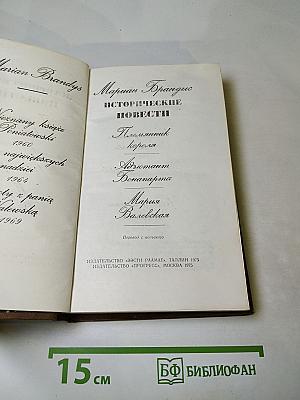 Marian Brandys
Nieznany książę
Poniatowski
1960
największych
nadziei
1964
z panią
Walewską
1969
Мариан Брандыс
ИСТОРИЧЕСКИЕ
ПОВЕСТИ
Племянник
короля
Адъютант
Бонапарта
Мария
Валевская
Перевод с польского
ИЗДАТЕЛЬСТВО «ЭЭСТИ РААМАТ», ТАЛЛИН 1975
ИЗДАТЕЛЬСТВО «ПРОГРЕСС», МОСКВА 1975
15 см
БФ БИБЛИОФАН